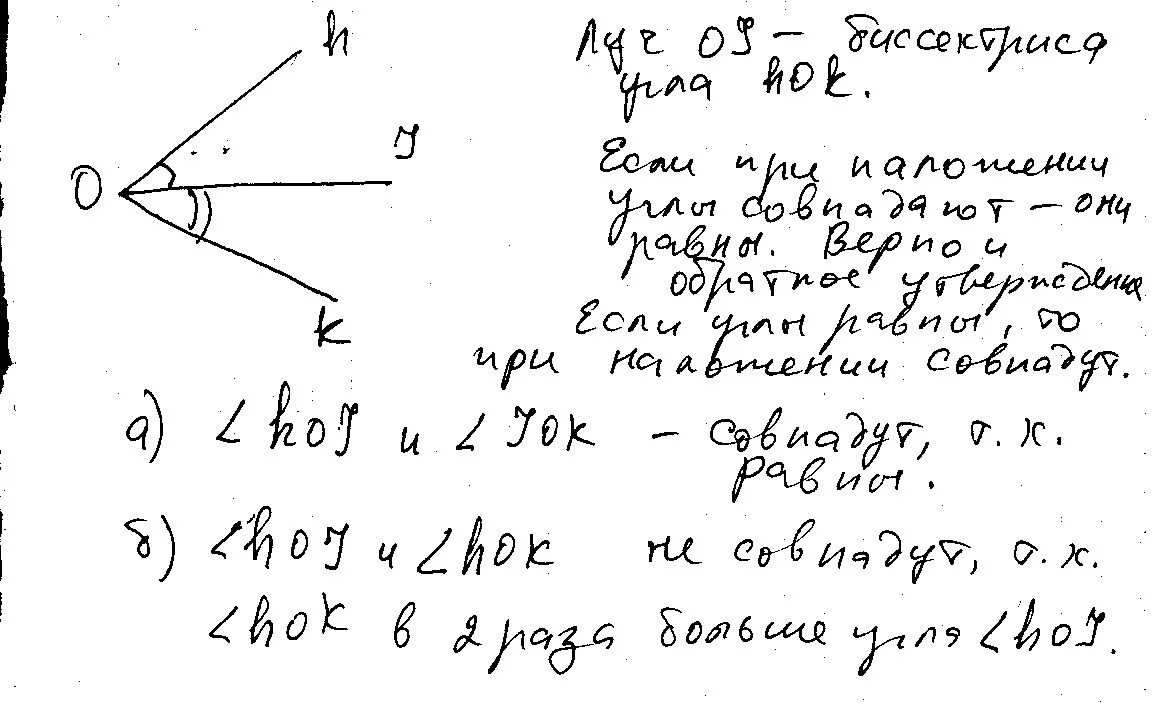 h
l
O
k
Луч Ol — биссектриса
угла hOk.
Если при наложении
углы совпадают — они
равны. Верно и
обратное утверждение
Если углы равны, то
при наложении совпадут.
а) ∠hOl и ∠lOk — совпадут, т.к.
равны.
б) ∠hOl и ∠hOk не совпадут, т.к.
∠hOk в 2 раза больше угла ∠hOl.